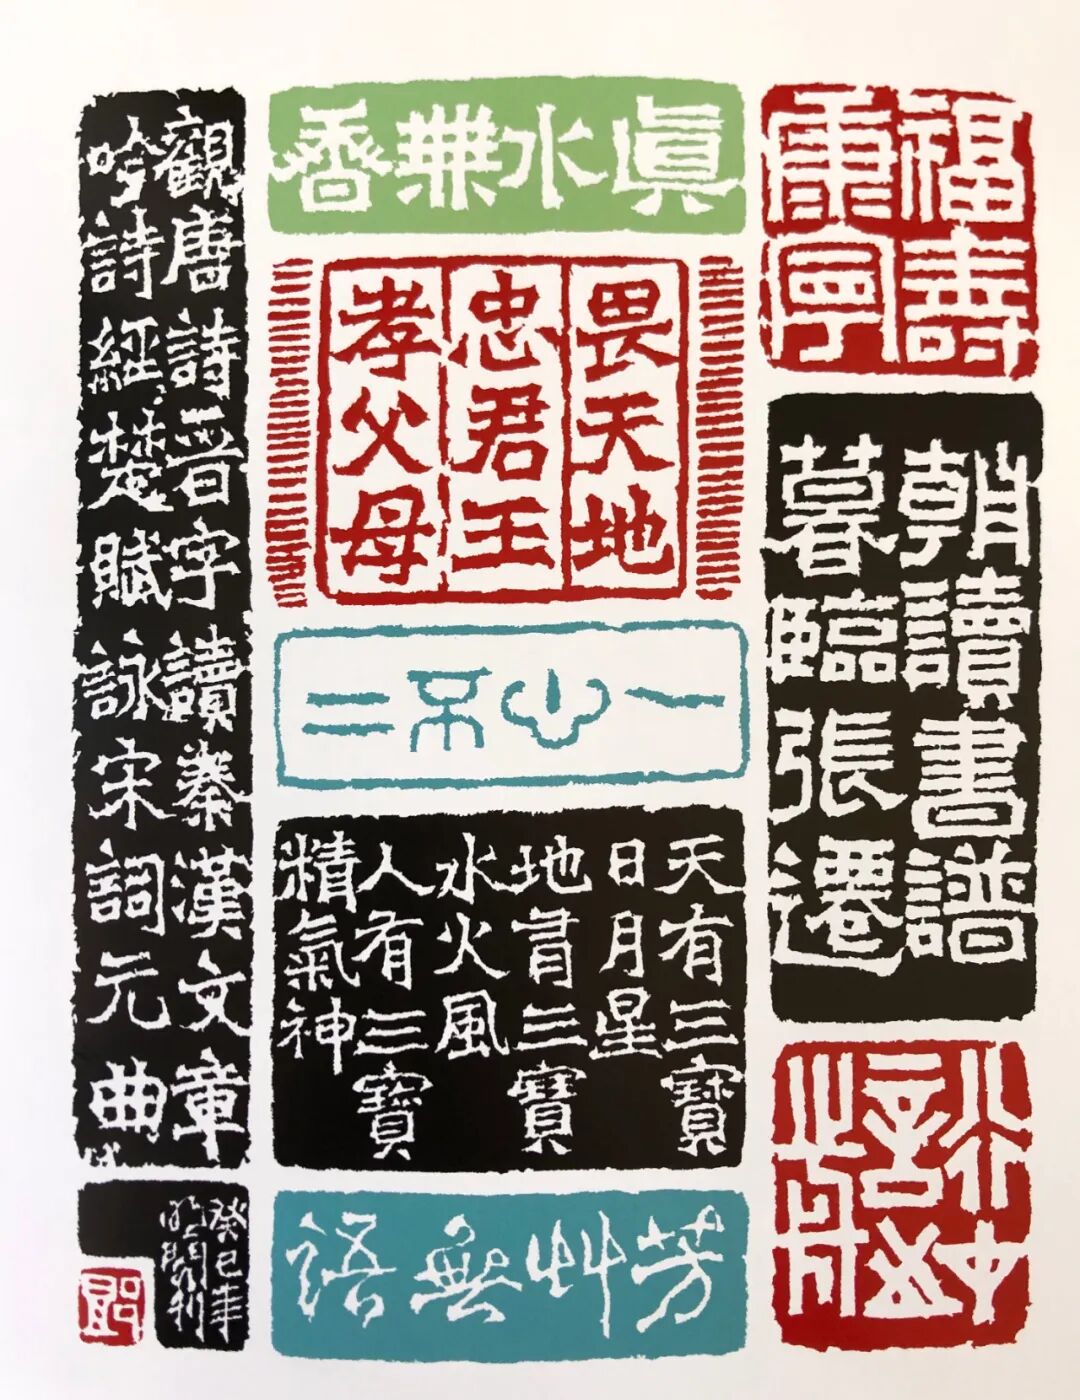 福壽
康寧
朝讀書譜
暮臨張遷
眞水無香
畏天地
忠君王
孝父母
一心不二
天有三寶
日月星
地有三寶
水火風
人有三寶
精氣神
芳艸無語
觀唐詩晉字讀秦漢文章
吟詩經楚賦詠宋詞元曲
癸巳年